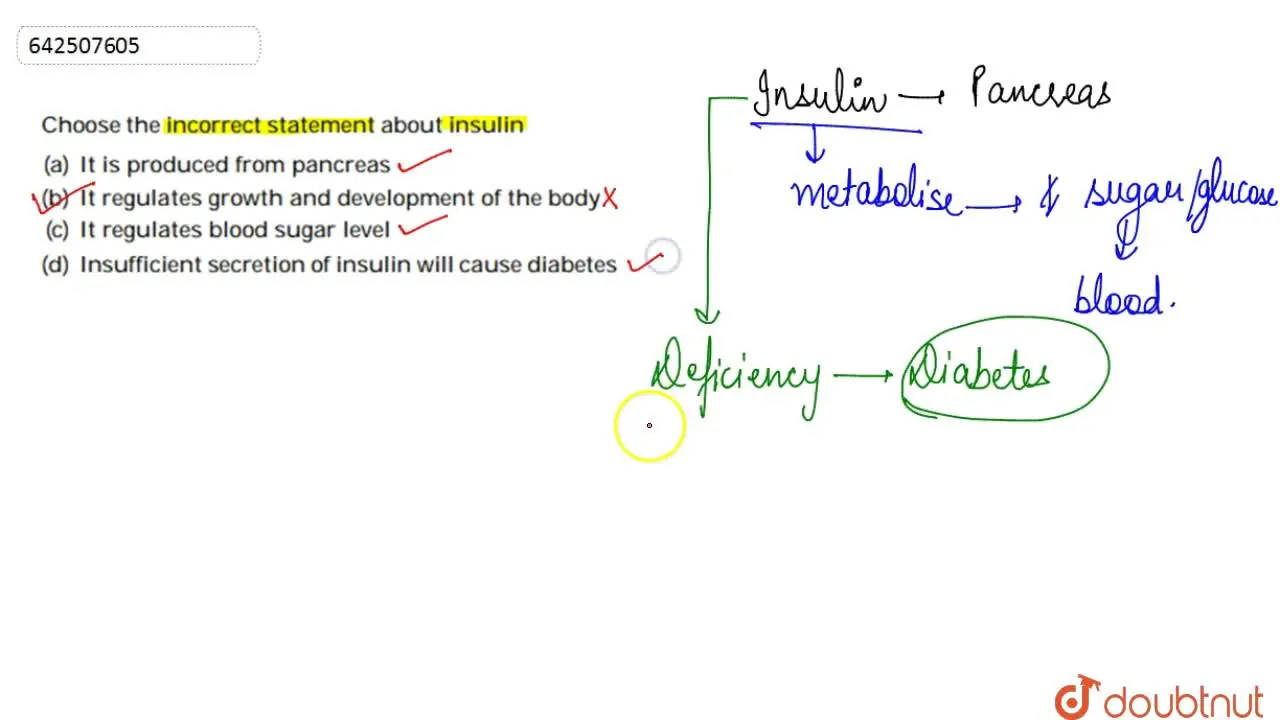 642507605
Choose the incorrect statement about insulin
(a) It is produced from pancreas
(b) It regulates growth and development of the body X
(c) It regulates blood sugar level
(d) Insufficient secretion of insulin will cause diabetes
Insulin → Pancreas
metabolise → sugar/glucose
blood.
Deficiency → Diabetes
doubtnut